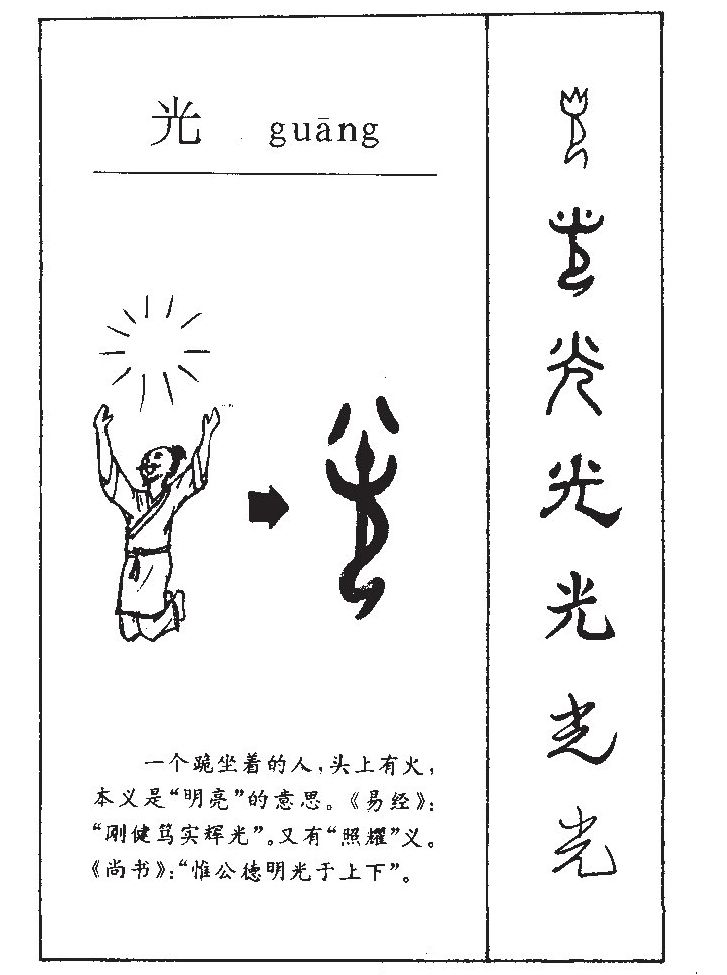 光 guāng
一个跪坐着的人，头上有火，
本义是“明亮”的意思。《易经》：
“刚健笃实辉光”。又有“照耀”义。
《尚书》：“惟公德明光于上下”。
光
光
光
光
光
光
光